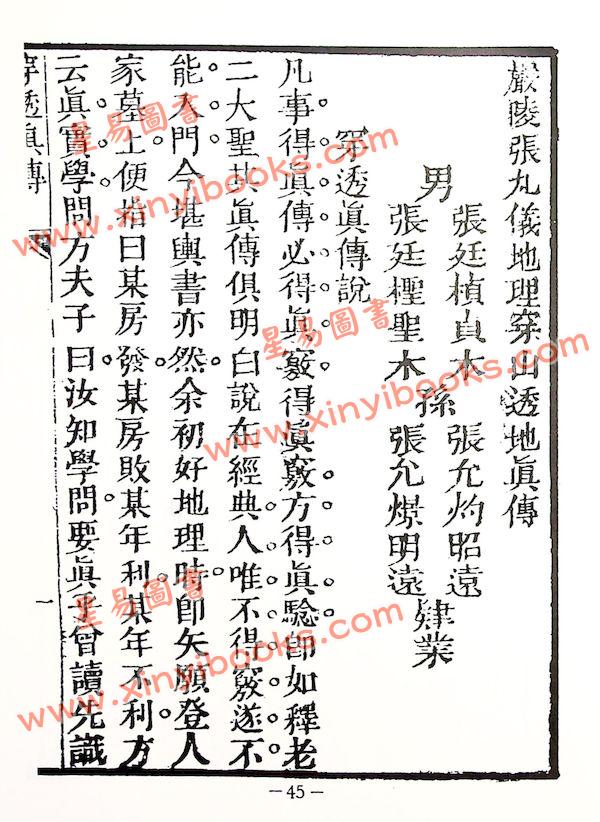 嚴陵張九儀地理穿山透地眞傳
男
張廷楨貞木
張廷檉聖木
孫
張允灼昭遠
張允憬明遠
肄業
穿透眞傳說
凡事得眞傳必得眞竅得眞竅方得眞驗卽如釋老
二大聖其眞傳俱明白說在經典人唯不得竅遂不
能入門今堪輿書亦然余初好地理時卽矢願登人
家墓上便指曰某房發某房敗某年利某年不利方
云眞實學問方夫子曰汝知學問要眞乎曾讀先識
穿透眞傳
一
星易圖書
www.xinyibooks.com
星易圖書
www.xinyibooks.com
星易圖書
www.xinyibooks.com
－45－